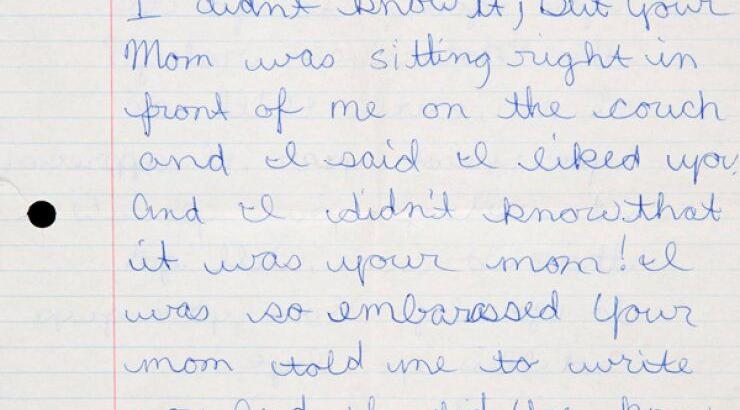 I didn't know it, but your
Mom was sitting right in
front of me on the couch
and I said I liked you.
And I didn't know that
it was your mom! I
was so embarassed Your
mom told me to write